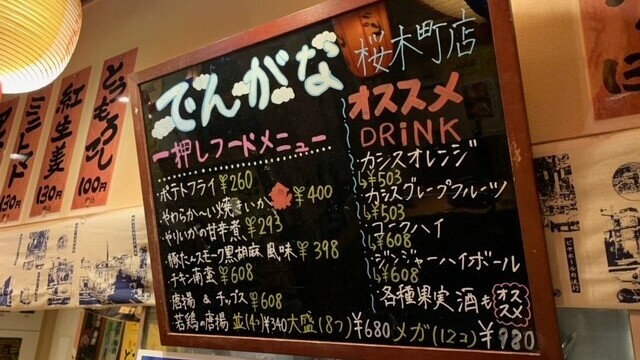 でんがな
桜木町店
一押しフードメニュー
ポテトフライ ¥260
やわらか〜い焼きいか ¥400
やりいかの甘辛煮 ¥293
豚たんスモーク黒胡麻風味 ¥398
チキン南蛮 ¥608
唐揚 & チップス ¥608
若鶏の唐揚 並(4ヶ)¥340 大盛(8つ)¥680 メガ(12コ)¥980
オススメ
DRiNK
カシスオレンジ
¥503
カシスグレープフルーツ
¥503
コークハイ
¥608
ジンジャーハイボール
¥608
各種果実酒も オススメ
とうもろこし
100円
紅生姜
130円
ミニトマト
130円